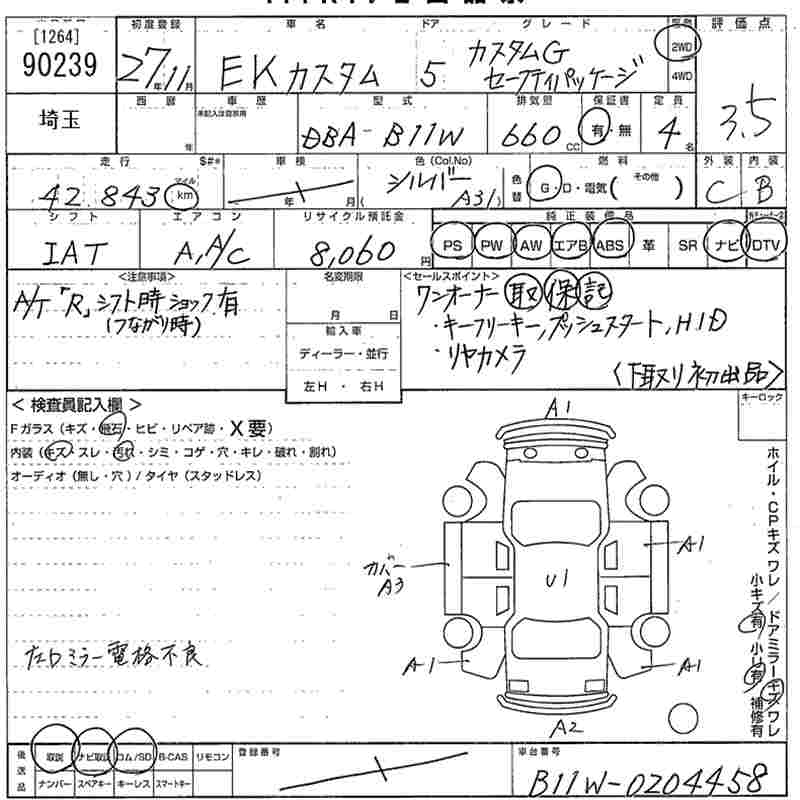 [1264]
90239
埼玉
初度登録 車名 ドア グレード 評価点
27年11月 EKカスタム 5 カスタムG
セーフティパッケージ
2WD
4WD
3.5
西暦 車歴 型式 排気量 保証書 定員
未記入は自家用
年 DBA-B11W 660cc 有・無 4名
走行 $#* 車検 色(Col.No) 燃料 外装 内装
42,843 マイル km 年 月 シルバー( A31) 色替 G・D・電気( その他 ) C B
シフト エアコン リサイクル預託金 純正装備品
IAT A,A/C 8,060円 PS PW AW エアB ABS 革 SR ナビ DTV
<注意事項> 名変期限 <セールスポイント>
A/T「R」シフト時ショック有
(つながり時)
月 日
輸入車
ディーラー・並行
左H ・ 右H
ワンオーナー 取 保 記
・キーフリーキー,プッシュスタート,HID
・リヤカメラ
〈下取り初出品〉
<検査員記入欄>
キーロック
Fガラス(キズ・飛石・ヒビ・リペア跡・X要)
内装(キズ・スレ・汚れ・シミ・コゲ・穴・キレ・破れ・割れ)
オーディオ(無し・穴)/タイヤ(スタッドレス)
A1
カバー
A3
A1
U1
A1
A1
A2
左Dミラー電格不良
ホイル・CPキズ ワレ/ドアミラーキズワレ
小キズ有 小U有 補修有
後送品 取説 ナビ取説 ロム/SD B-CAS リモコン
ナンバー スペアキー キーレス スマートキー
登録番号
車台番号
B11W-0204458